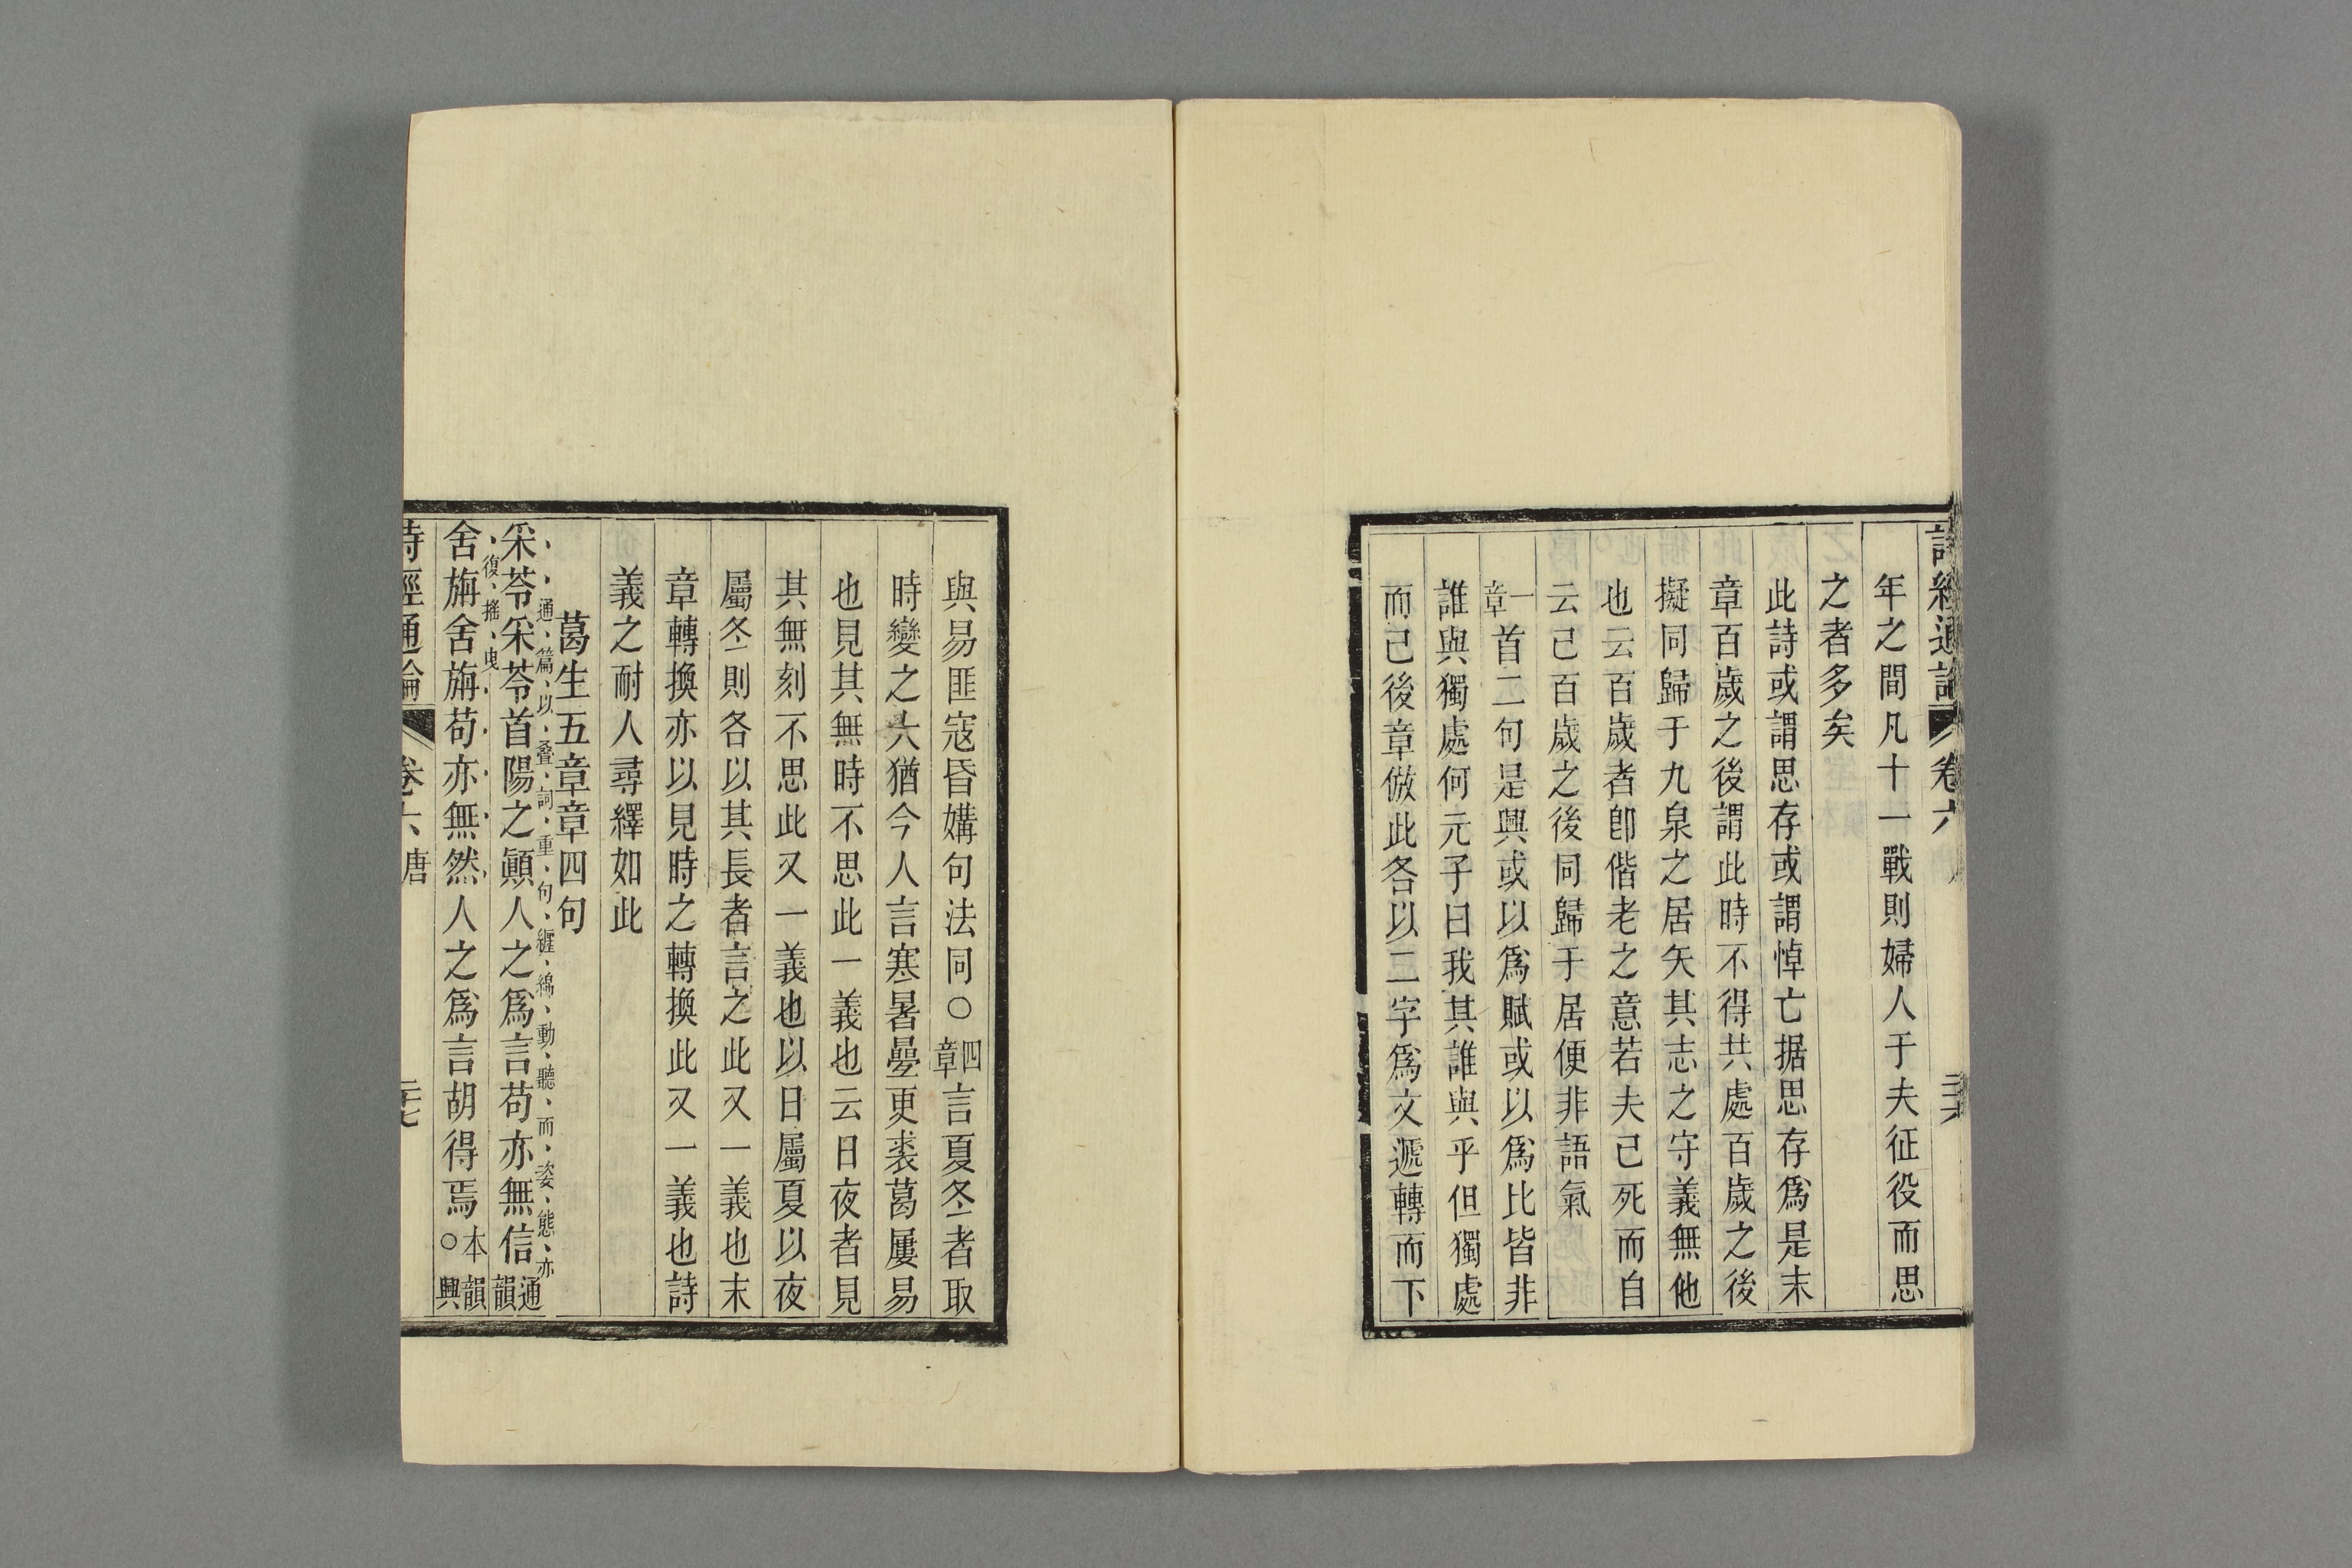 詩經通論 卷六
年之間凡十一戰則婦人于夫征役而思
之者多矣
此詩或謂思存或謂悼亡据思存爲是末
章百歲之後謂此時不得共處百歲之後
擬同歸于九泉之居矢其志之守義無他
也云百歲者卽偕老之意若夫已死而自
云己百歲之後同歸于居便非語氣
一章首二句是興或以爲賦或以爲比皆非
誰與獨處何元子曰我其誰與乎但獨處
而已後章倣此各以二字爲文遞轉而下
與易匪寇昏媾句法同○四章言夏冬者取
時變之大猶今人言寒暑曡更裘葛屢易
也見其無時不思此一義也云日夜者見
其無刻不思此又一義也以日屬夏以夜
屬冬則各以其長者言之此又一義也末
章轉換亦以見時之轉換此又一義也詩
義之耐人尋繹如此
葛生五章章四句
通篇以叠詞重句纏綿動聽而姿態亦
采苓采苓首陽之顚人之爲言苟亦無信通韻
復搖曳
舍旃舍旃苟亦無然人之爲言胡得焉本韻○興
詩經通論 卷六 唐 二十七